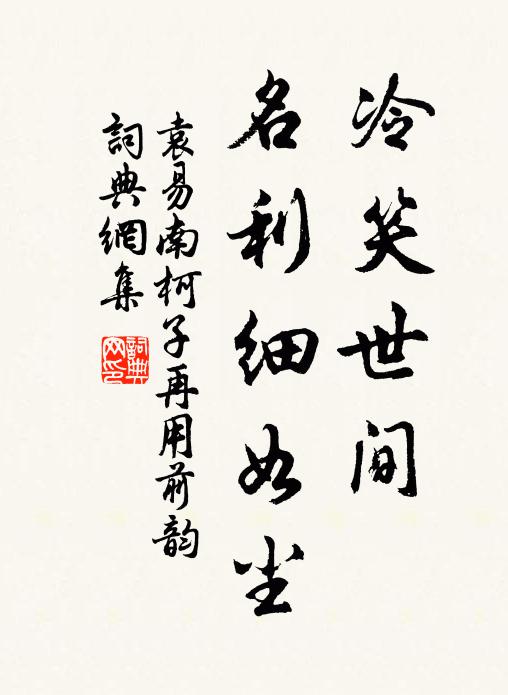 冷笑世间
名利细如尘
袁易南柯子再用前韵
詞典網集
詞典網印